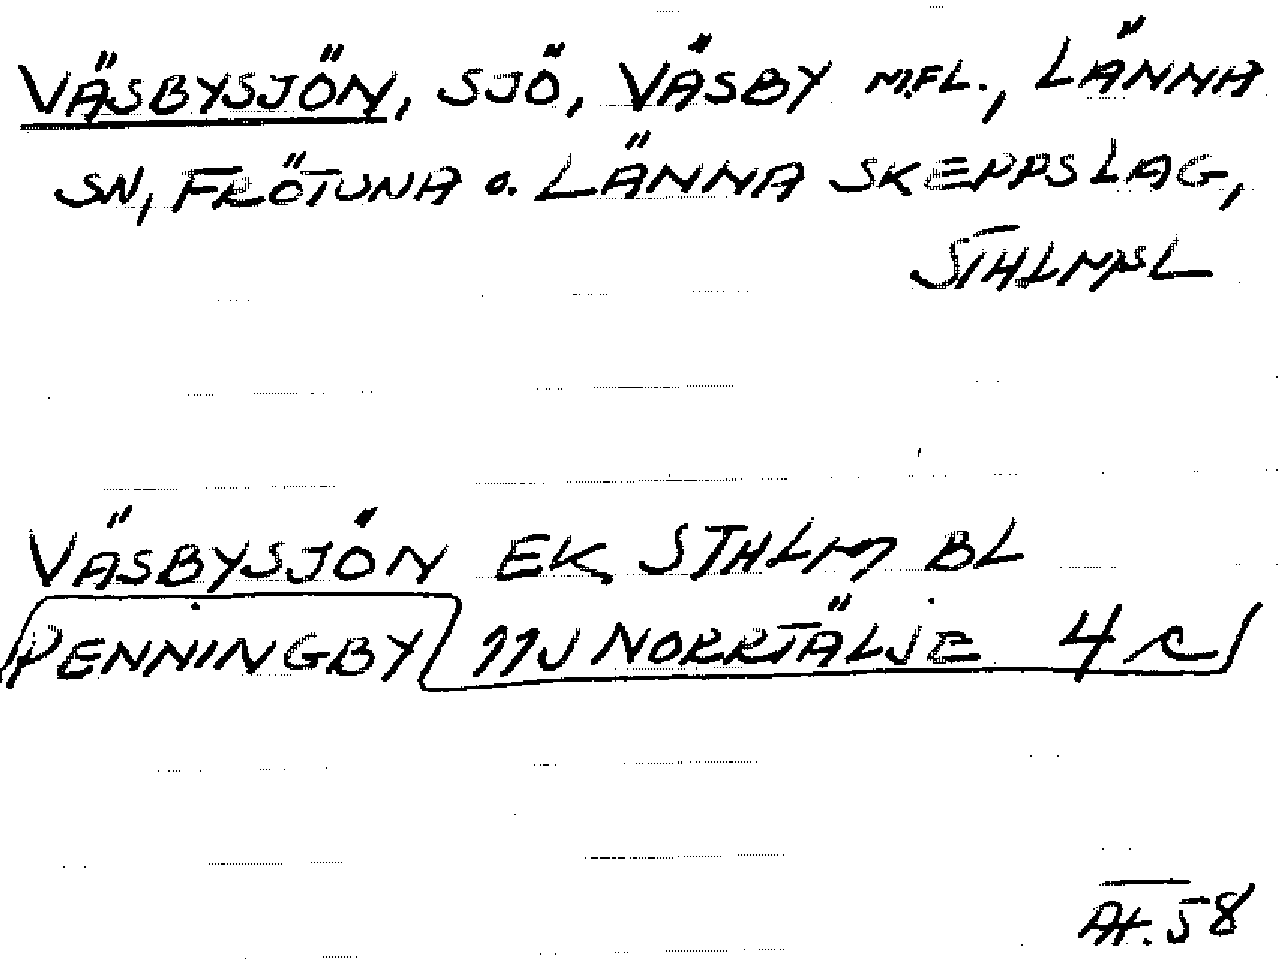 VÄSBYSJÖN, SJÖ, VÄSBY M.FL., LÄNNA
SN, FRÖTUNA o. LÄNNA SKEPPSLAG,
STHLMSL
VÄSBYSJÖN EK STHLM BL
PENNINGBY 11J NORRTÄLJE 4 c
At. 58